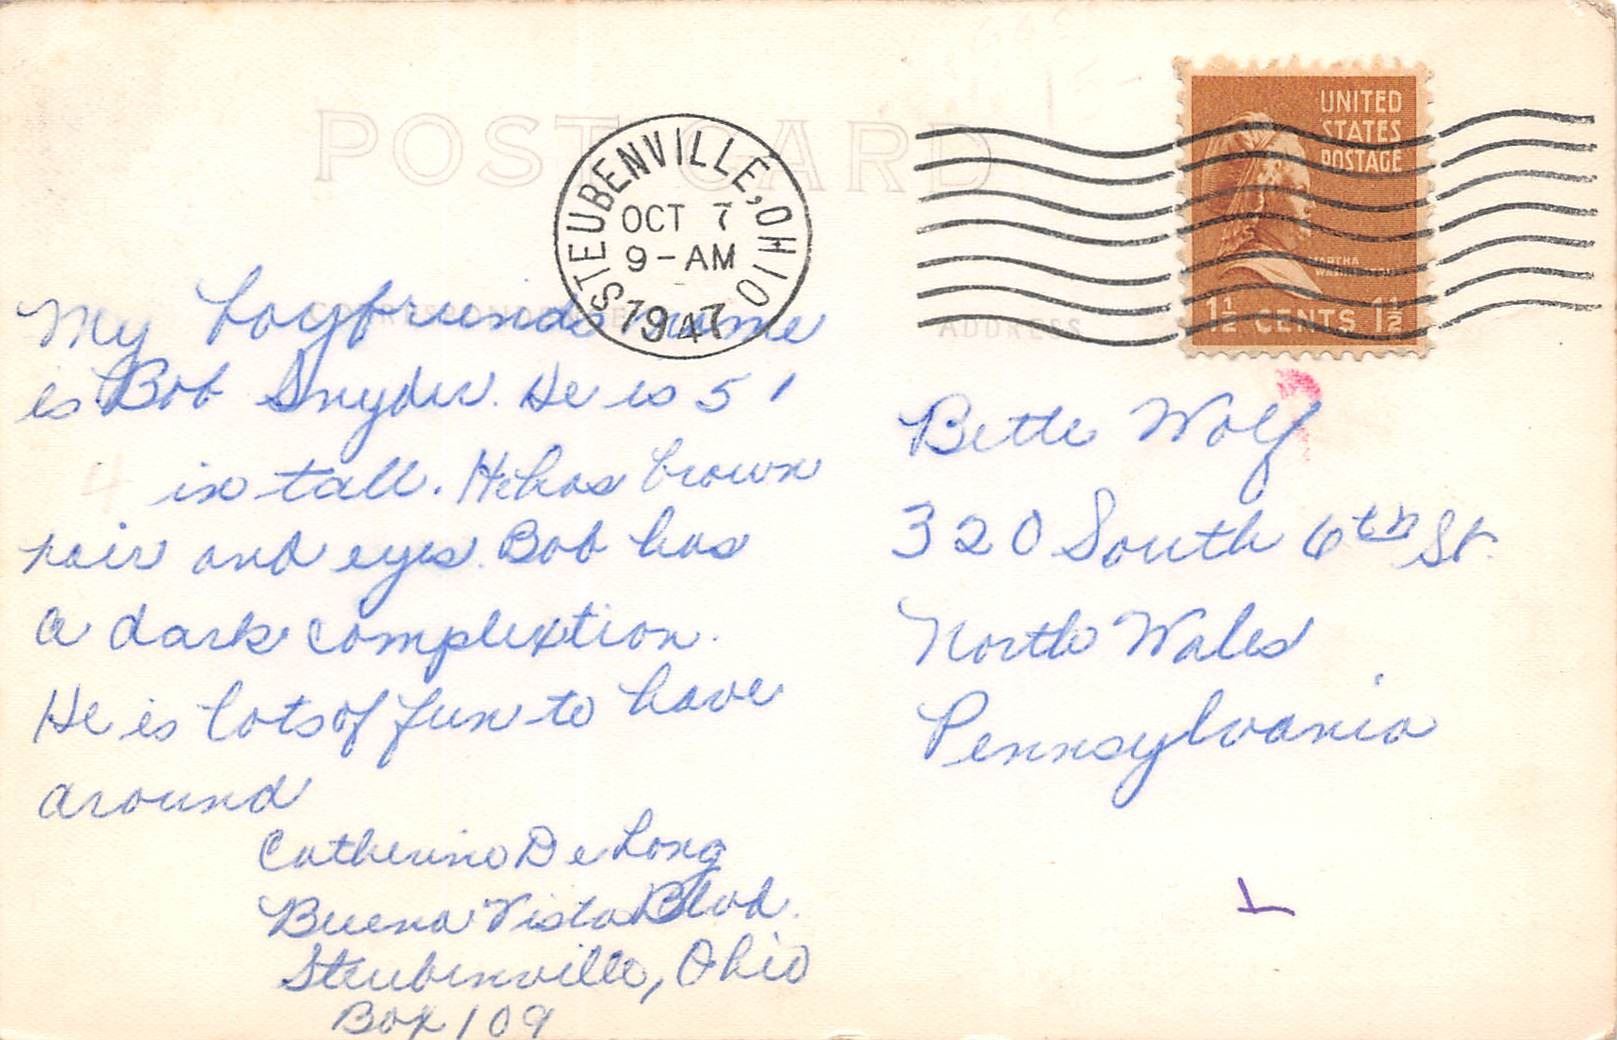 POST CARD
STEUBENVILLE, OHIO
OCT 7
9-AM
1947
UNITED
STATES
POSTAGE
MARTHA
WASHINGTON
1½ CENTS 1½
CORRESPONDENCE
ADDRESS
My boyfriends name
is Bob Snyder. He is 5 1
in tall. He has brown
hair and eyes. Bob has
a dark complextion.
He is lots of fun to have
around
Catherine De Long
Buena Vista Blvd.
Steubenville, Ohio
Box 109
Bette Wolf
320 South 6th St.
North Wales
Pennsylvania